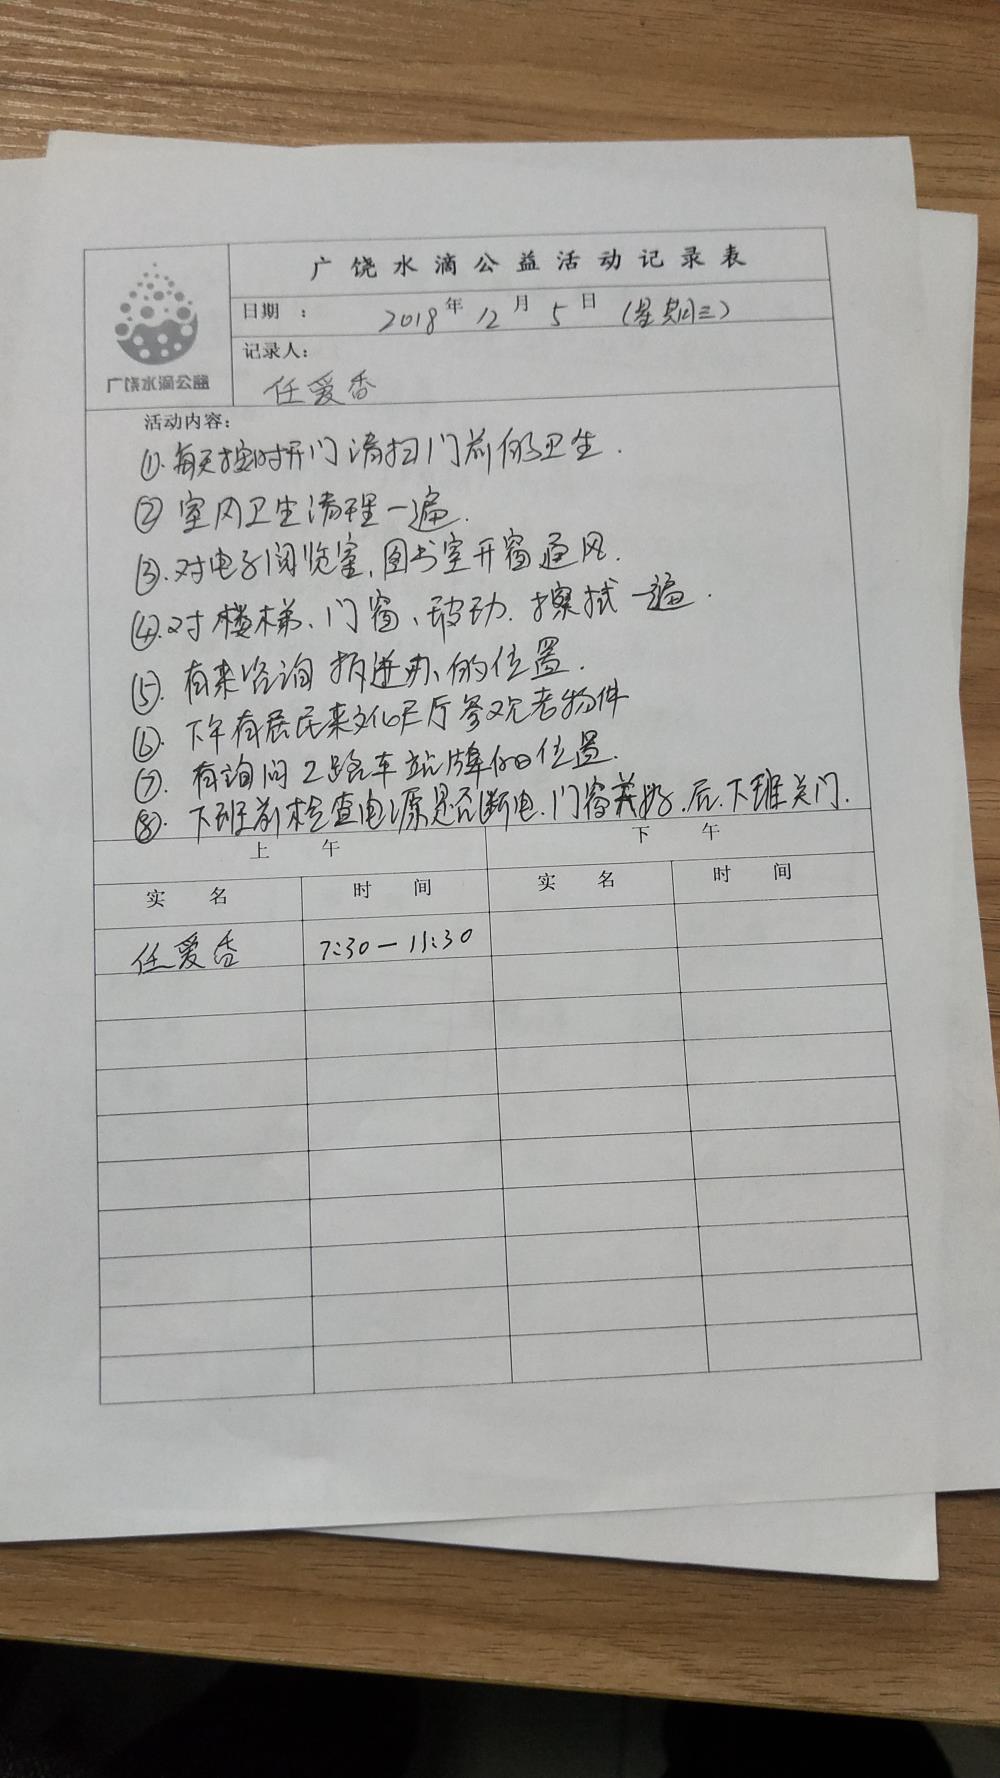 广饶水滴公益活动记录表
日期 : 2018年12月5日(星期三)
广饶水滴公益
记录人:
任爱香
活动内容:
①.每天按时开门清扫门前的卫生.
② 室内卫生清理一遍.
③.对电子阅览室,图书室开窗通风.
④.对楼梯、门窗、玻功.擦拭一遍.
⑤.有来咨询拆迁办、的位置.
⑥.下午有居民来文化展厅参观老物件
⑦.有询问2路车站牌的位置.
⑧.下班前检查电源是否断电.门窗关好.后.下班关门.
上午 下午
实名 时间 实名 时间
任爱香 7:30—11:30